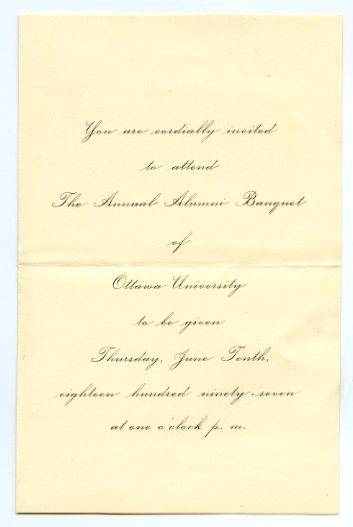 You are cordially invited
to attend
The Annual Alumni Banquet
of
Ottawa University
to be given
Thursday, June Tenth,
eighteen hundred ninety-seven
at one o'clock p. m.